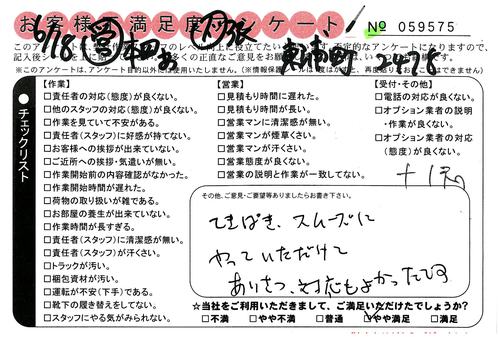 お客様満足度アンケート
№ 059575
6/18
2478
このアンケートは、
※このアンケートは、アンケート目的以外に使用いたしません。
チェックリスト
【作業】
□責任者の対応(態度)が良くない。
□他のスタッフの対応(態度)が良くない。
□作業を見ていて不安がある。
□責任者(スタッフ)に好感が持てない。
□お客様への挨拶が出来ていない。
□ご近所への挨拶・気遣いが無い。
□作業開始前の内容確認がなかった。
□作業開始時間が遅れた。
□荷物の取り扱いが雑である。
□お部屋の養生が出来ていない。
□作業時間が長すぎる。
□責任者(スタッフ)に清潔感が無い。
□責任者(スタッフ)が汗くさい。
□トラックが汚い。
□梱包資材が汚い。
□運転が安全(下手)である。
□靴下の履き替えをしてない。
□スタッフにやる気がみられない。
【営業】
□見積もり時間に遅れた。
□見積もり時間が長い。
□営業マンに清潔感が無い。
□営業マンが煙草くさい。
□営業マンが汗くさい。
□営業態度が良くない。
□営業の説明と作業が一致してない。
【受付・その他】
□電話の対応が良くない。
□オプション業者の説明
・作業が良くない。
□オプション業者の対応
(態度)が良くない。
その他、ご意見・ご要望等ありましたらお書き下さい。
てきぱき、スムーズに
やっていただけて
あいさつ、対応もよかったです
☆当社をご利用いただきまして、ご満足いただけたでしょうか？
□不満 □やや不満 □普通 □やや満足 □満足